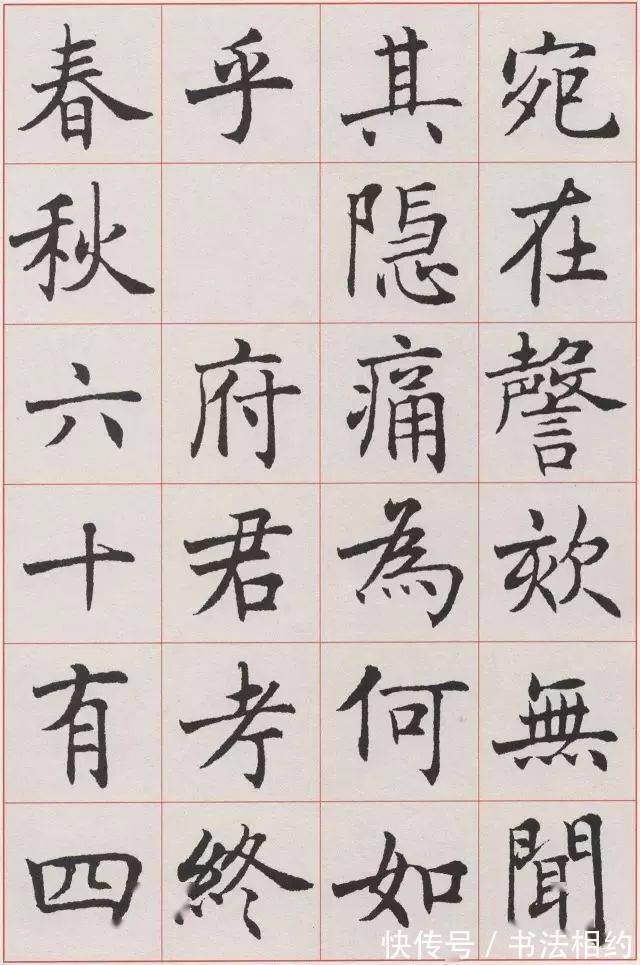 宛在謦欬無聞
其隠痛為何如
乎 府君考終
春秋六十有四
快传号 / 书法相约